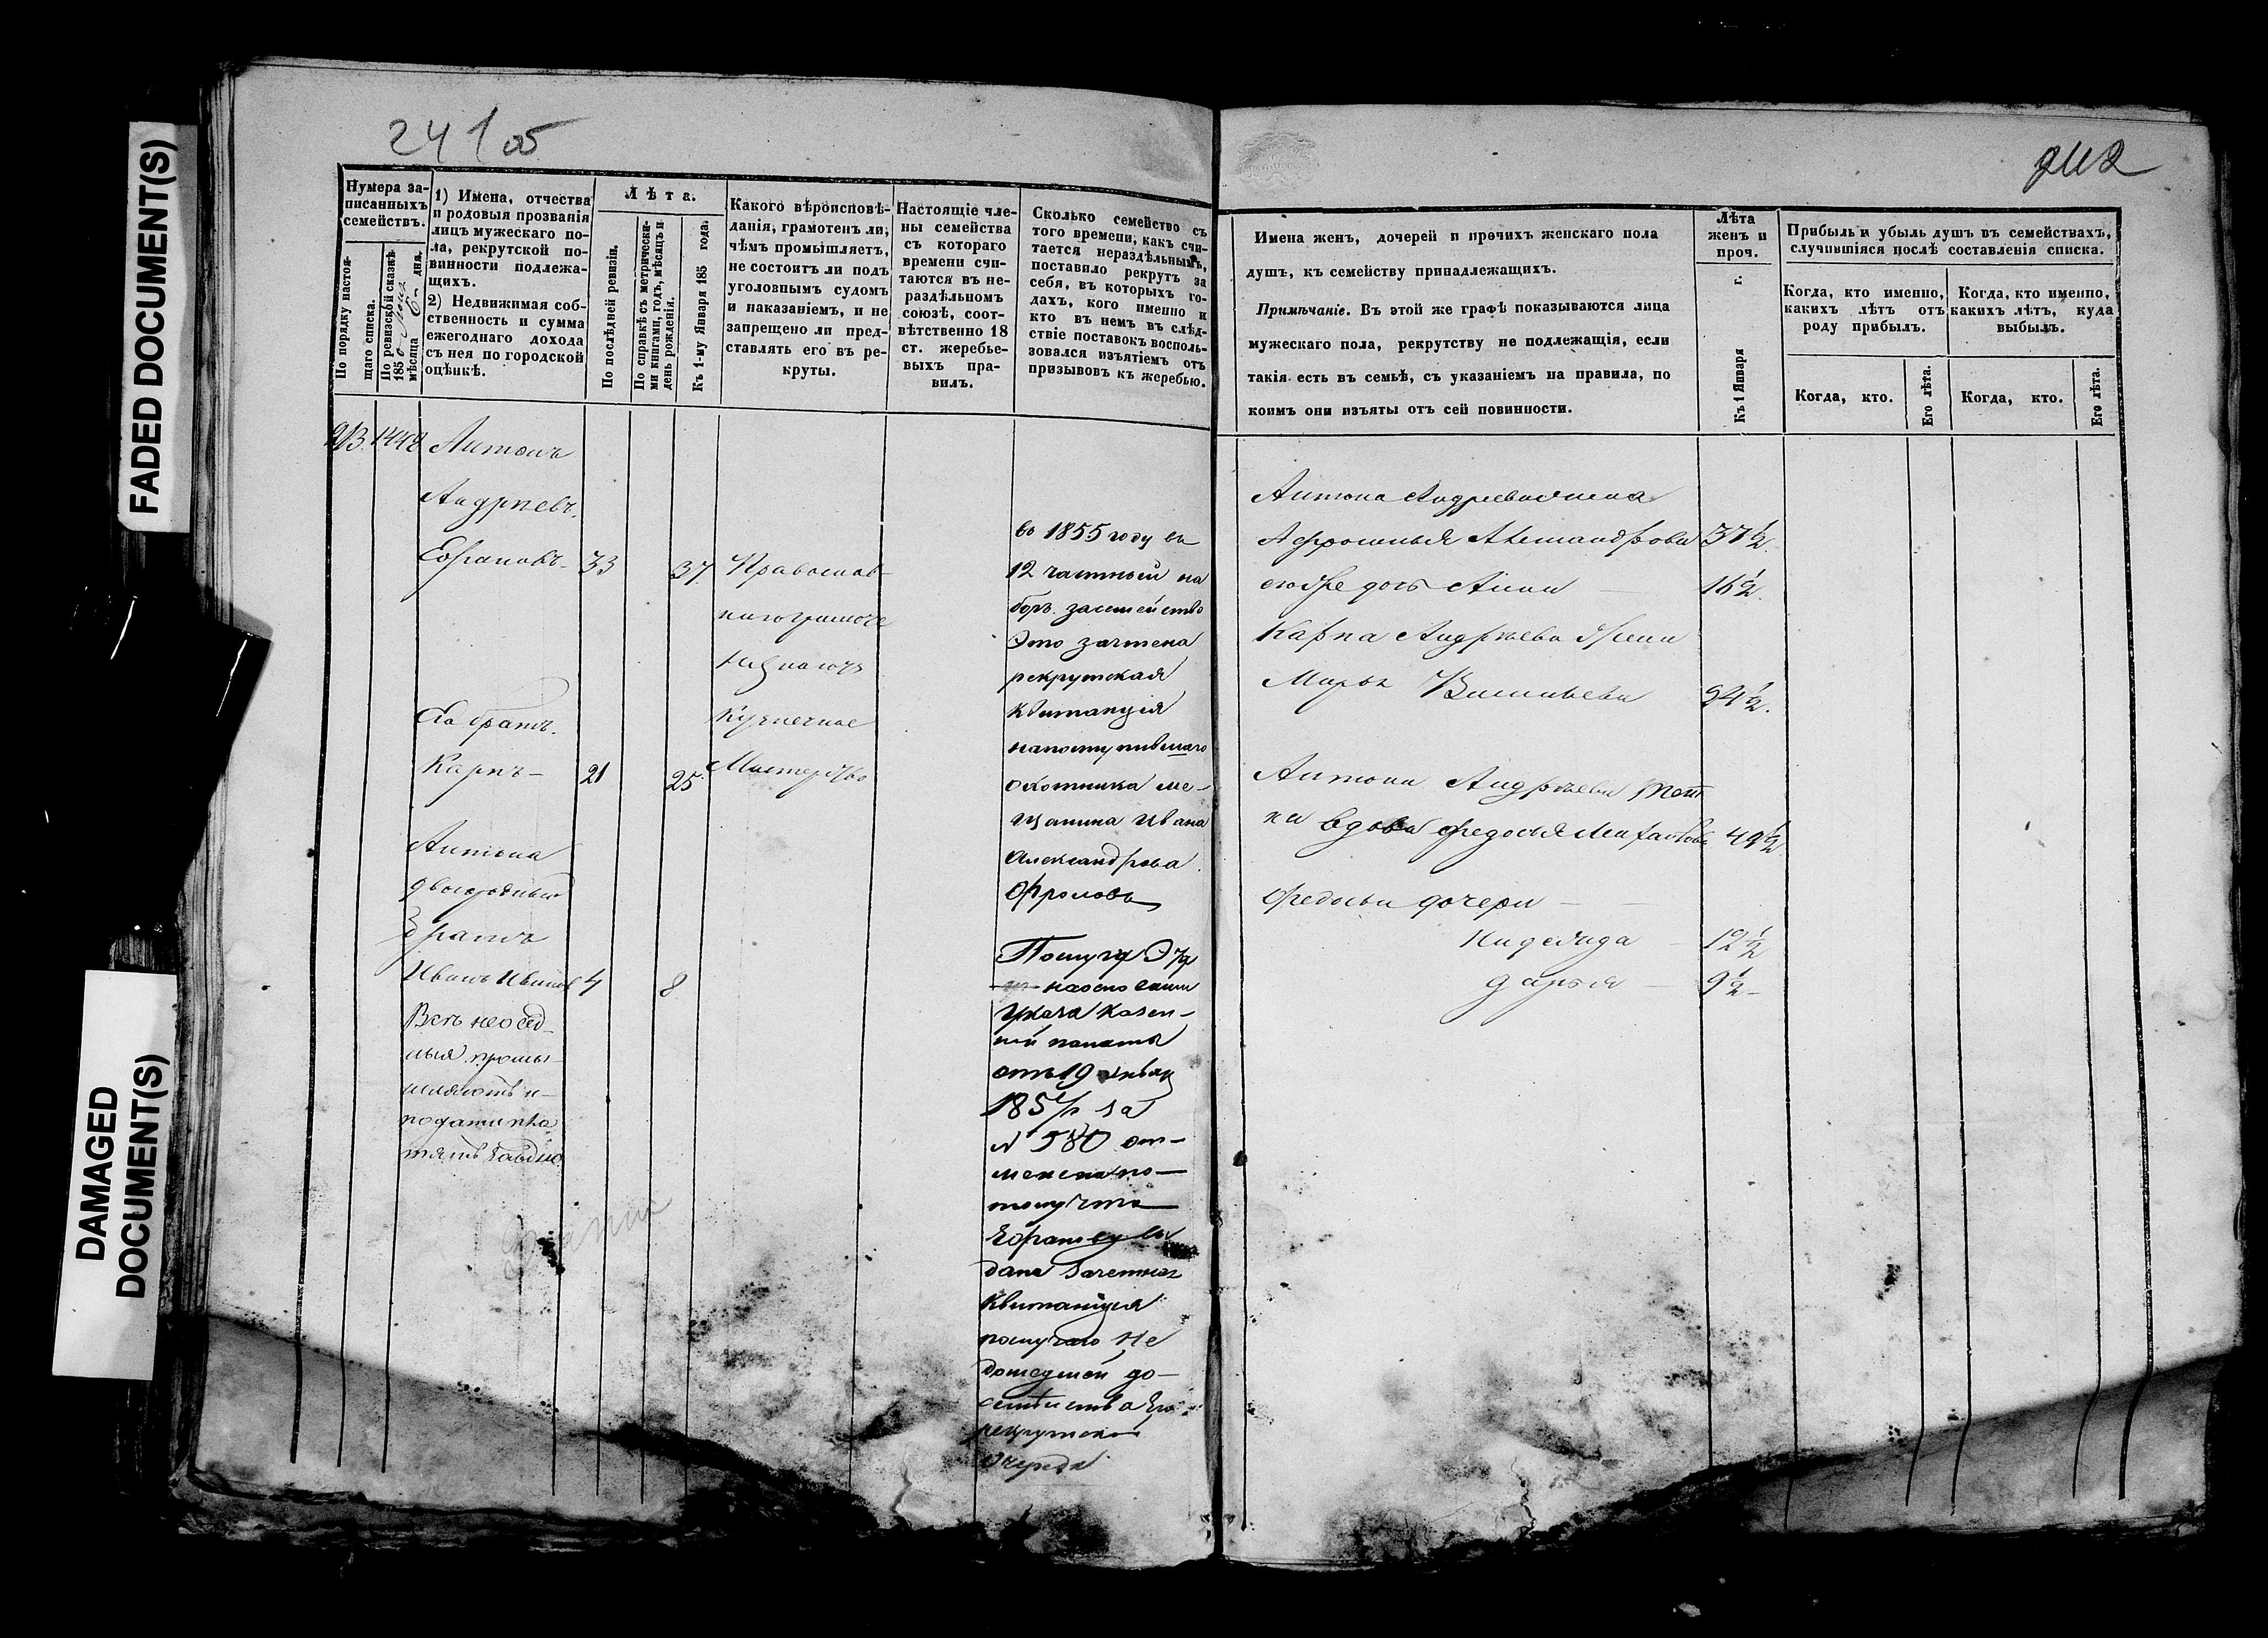 FADED DOCUMENT(S)
DAMAGED
DOCUMENT(S)
24 1 05
Нумера за-
писанныхъ
семействъ.
По порядку настоя-
щаго списка.
По ревизской сказкѣ
185
мѣсяца 6 дня.
1) Имена, отчества
и родовыя прозванія
лицъ мужескаго по-
ла, рекрутской по-
винности подлежа-
щихъ.
2) Недвижимая соб-
ственность и сумма
ежегоднаго дохода
съ нея по городской
оцѣнкѣ.
Лѣта.
По послѣдней ревизіи.
По справкѣ съ метрически-
ми книгами, годъ, мѣсяцъ и
день рожденія.
Къ 1-му Января 185 года.
Какого вѣроисповѣ-
данія, грамотенъ ли,
чѣмъ промышляетъ,
не состоитъ ли подъ
уголовнымъ судомъ
и наказаніемъ, и не
запрещено ли пред-
ставлять его въ ре-
круты.
Настоящіе чле-
ны семейства
съ котораго
времени счи-
таются въ не-
раздѣльномъ
союзѣ, соот-
вѣтственно 18
ст. жеребье-
выхъ пра-
вилъ.
Сколько семейство съ
того времени, какъ счи-
тается нераздѣльнымъ,
поставило рекрутъ за
себя, въ которыхъ го-
дахъ, кого именно и
кто въ немъ въ слѣд-
ствіе поставокъ восполь-
зовался изъятіемъ отъ
призывовъ къ жеребью.
213 1448 Антонъ
Андреевъ.
33 37 Православ-
Его братъ.
Кузнечное
Карпъ - 21 25 Мастерство
Антона
двоюродный
братъ
Иванъ Ивановъ 4 8
Всѣ неосѣд-
лыя промы-
шляютъ и
подати пла
тятъ
въ 1855 году въ
12 частной на
боръ. за семейство
Это зачтена
рекрутская
квитанція
на поступившаго
охотника ме-
щанина Ивана
Александрова
Фролова
на основании
указа Казен-
ной палаты
отъ 19 Января
185 за
№ 580 от-
менена по-
тому что
дана зачетная
квитанція
по случаю не
дошедшей до
семейства его
рекрутской
очереди
242
Имена женъ, дочерей и прочихъ женскаго пола
душъ, къ семейству принадлежащихъ.
Примѣчаніе. Въ этой же графѣ показываются лица
мужескаго пола, рекрутству не подлежащія, если
такія есть въ семьѣ, съ указаніемъ на правила, по
коимъ они изъяты отъ сей повинности.
Лѣта
женъ и
проч.
Къ 1 Января г.
Прибыль и убыль душъ въ семействахъ,
случившіяся послѣ составленія списка.
Когда, кто именно,
какихъ лѣтъ отъ
роду прибылъ.
Когда, кто именно,
какихъ лѣтъ, куда
выбылъ.
Когда, кто.
Его лѣта.
Когда, кто.
Его лѣта.
Антона Андреева жена
Афросинья Александрова 37 1/2.
дочь Анна 16 1/2.
Карпа Андреева жена
Марья Васильева 24 1/2.
Антона Андреева тет
ка вдова Федосья 49 1/2
Федосьи дочери
Надежда 12 1/2
Дарья 9 1/2